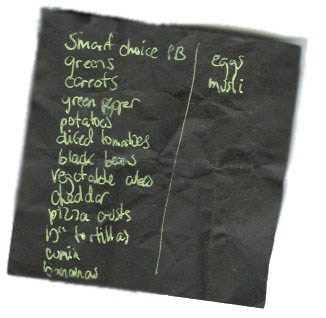 Smart choice PB
greens
carrots
green pepper
potatoes
diced tomatoes
black beans
vegetable
cheddar
pizza crusts
10" tortillas
cumin
bananas
eggs
musli